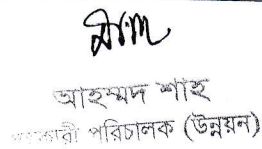 আহম্মদ শাহ
পরিচালক (উন্নয়ন)